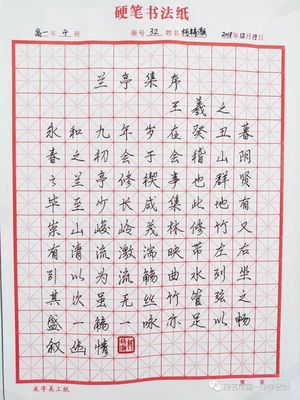 硬笔书法纸
高二年4班 座号32 姓名 2018年12月19日
兰亭集序
王羲之
永和九年岁在癸丑暮
春之初会于会稽山阴
之兰亭修禊事也群贤
毕至少长咸集此地有
崇山峻岭茂林修竹又
有清流激湍映带左右
引以为流觞曲水列坐
其次虽无丝竹管弦之
盛一觞一咏亦足以畅
叙幽情
米字美工纸
第 页
茂名市第一中学团委